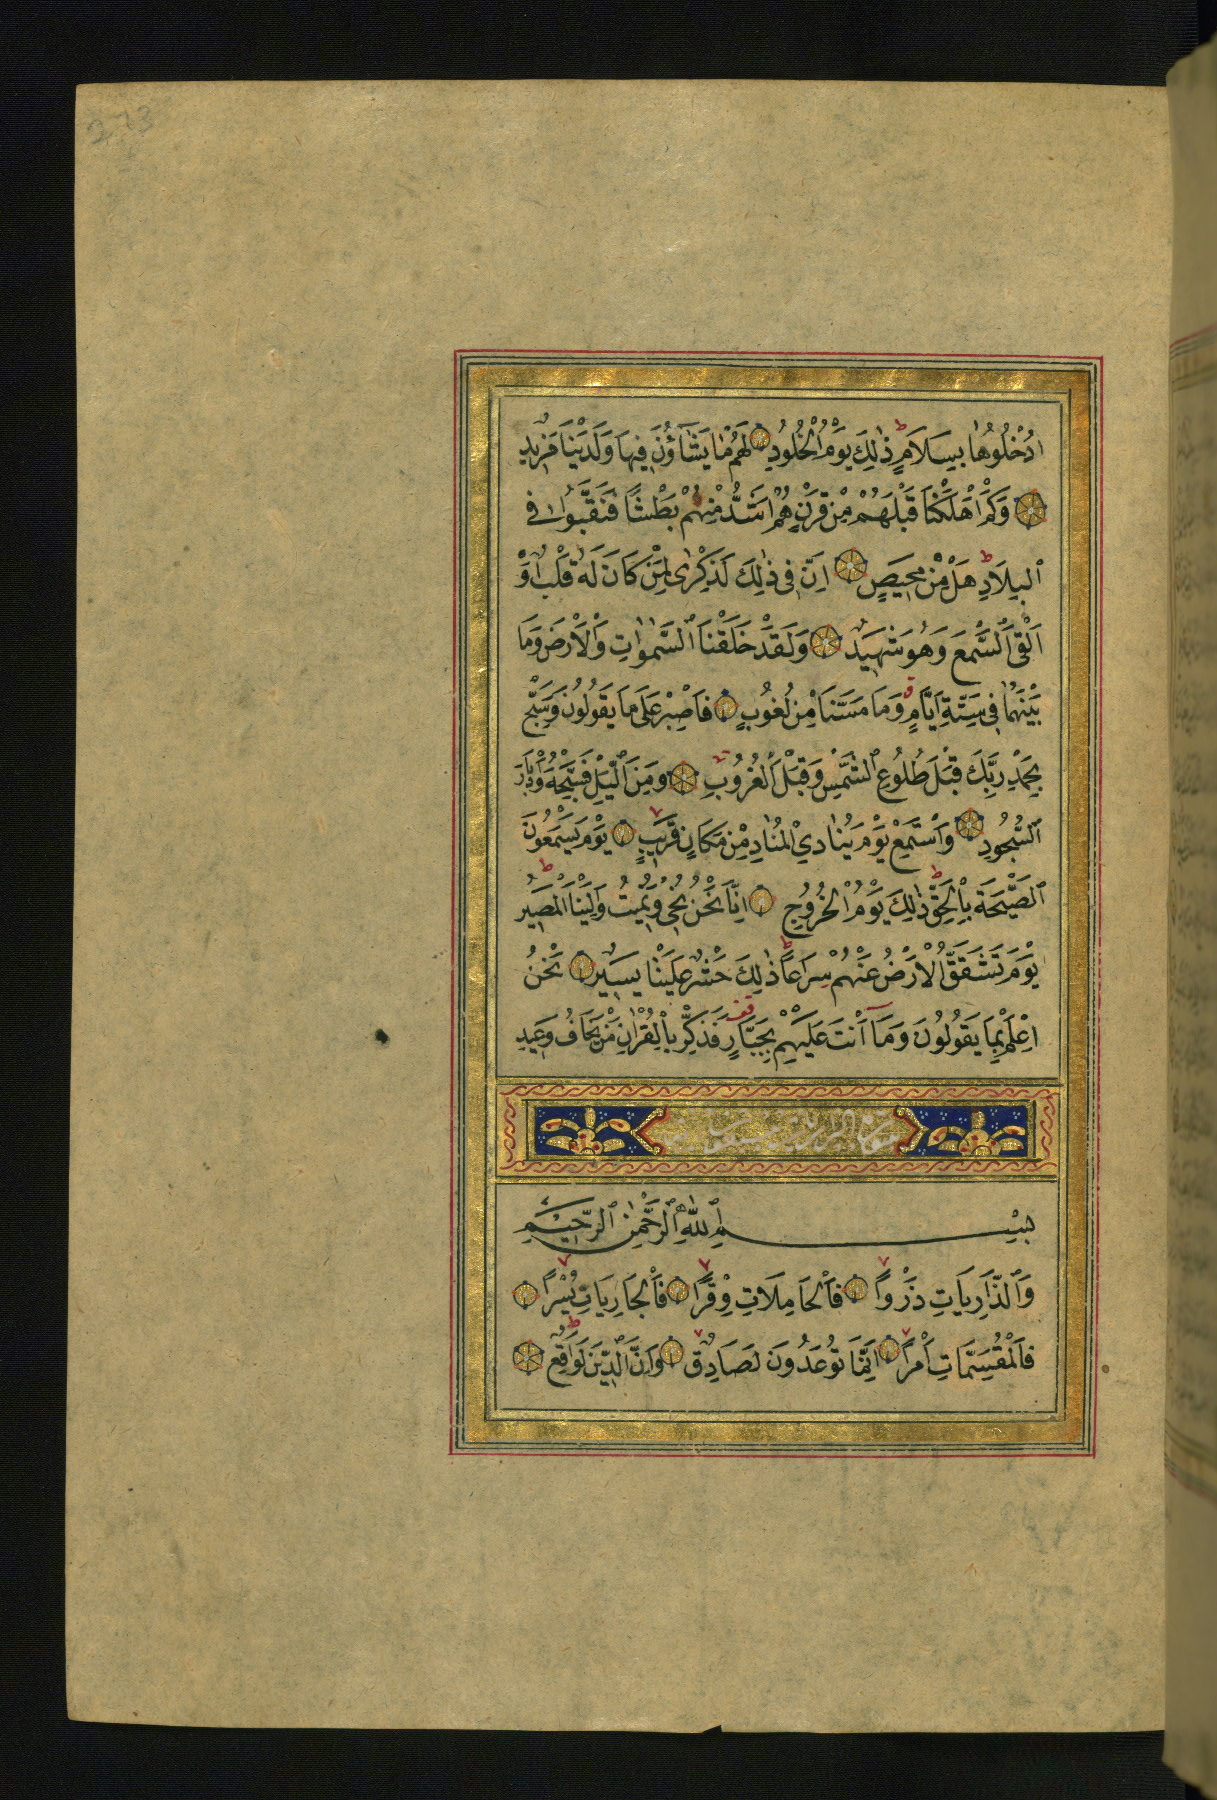 273
اُدْخُلُوهَا بِسَلَامٍ ط ذٰلِكَ يَوْمُ الْخُلُودِ لَهُمْ مَا يَشَآؤُنَ فِيهَا وَلَدَيْنَا مَزِيدٌ
وَكَمْ اَهْلَكْنَا قَبْلَهُمْ مِنْ قَرْنٍ هُمْ اَشَدُّ مِنْهُمْ بَطْشًا فَنَقَّبُوا فِى
الْبِلَادِ ط هَلْ مِنْ مَحِيصٍ اِنَّ فِى ذٰلِكَ لَذِكْرٰى لِمَنْ كَانَ لَهُ قَلْبٌ اَوْ
اَلْقَى السَّمْعَ وَهُوَ شَهِيدٌ وَلَقَدْ خَلَقْنَا السَّمٰوَاتِ وَالْاَرْضَ وَمَا
بَيْنَهُمَا فِى سِتَّةِ اَيَّامٍ وَمَا مَسَّنَا مِنْ لُغُوبٍ فَاصْبِرْ عَلَى مَا يَقُولُونَ وَسَبِّحْ
بِحَمْدِ رَبِّكَ قَبْلَ طُلُوعِ الشَّمْسِ وَقَبْلَ الْغُرُوبِ وَمِنَ الَّيْلِ فَسَبِّحْهُ وَاَدْبَارَ
السُّجُودِ وَاسْتَمِعْ يَوْمَ يُنَادِي الْمُنَادِ مِنْ مَكَانٍ قَرِيبٍ يَوْمَ يَسْمَعُونَ
الصَّيْحَةَ بِالْحَقِّ ط ذٰلِكَ يَوْمُ الْخُرُوجِ اِنَّا نَحْنُ نُحْيِ وَنُمِيتُ وَاِلَيْنَا الْمَصِيرُ
يَوْمَ تَشَقَّقُ الْاَرْضُ عَنْهُمْ سِرَاعًا ط ذٰلِكَ حَشْرٌ عَلَيْنَا يَسِيرٌ نَحْنُ
اَعْلَمُ بِمَا يَقُولُونَ وَمَا اَنْتَ عَلَيْهِمْ بِجَبَّارٍ قف فَذَكِّرْ بِالْقُرْاٰنِ مَنْ يَخَافُ وَعِيدِ
بِسْمِ اللّٰهِ الرَّحْمٰنِ الرَّحِيمِ
وَالذَّارِيَاتِ ذَرْوًا فَالْحَامِلَاتِ وِقْرًا فَالْجَارِيَاتِ يُسْرًا
فَالْمُقَسِّمَاتِ اَمْرًا اِنَّمَا تُوعَدُونَ لَصَادِقٌ وَاِنَّ الدِّينَ لَوَاقِعٌ ط